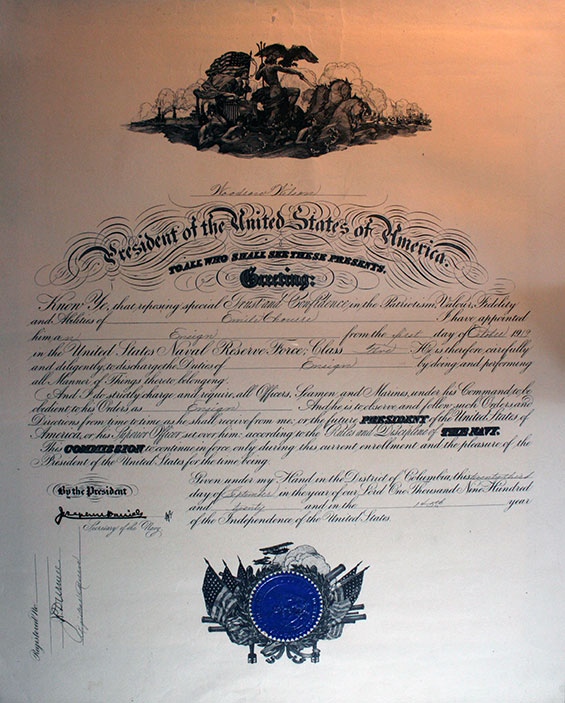 Woodrow Wilson
President of the United States of America.
TO ALL WHO SHALL SEE THESE PRESENTS,
Greeting:
Know Ye, that reposing special Trust and Confidence in the Patriotism, Valour, Fidelity
and Abilities of Emile I have appointed
him an Ensign from the first day of 1919
in the United States Naval Reserve Force; Class Five He is therefore carefully
and diligently to discharge the Duties of Ensign by doing and performing
all Manner of Things thereto belonging.
And I do strictly charge and require all Officers, Seamen and Marines, under his Command to be
obedient to his Orders as Ensign And he is to observe and follow such Orders and
Directions from time to time as he shall receive from me, or the future PRESIDENT of the United States of
America, or his Superior Officer set over him, according to the Rules and Discipline of THE NAVY.
This COMMISSION to continue in force only during this current enrollment and the pleasure of the
President of the United States for the time being.
Given under my Hand in the District of Columbia, this
day of September in the year of our Lord One Thousand Nine Hundred
and twenty and in the year
of the Independence of the United States.
By the President
Josephus Daniels
Secretary of the Navy.
Registered No.